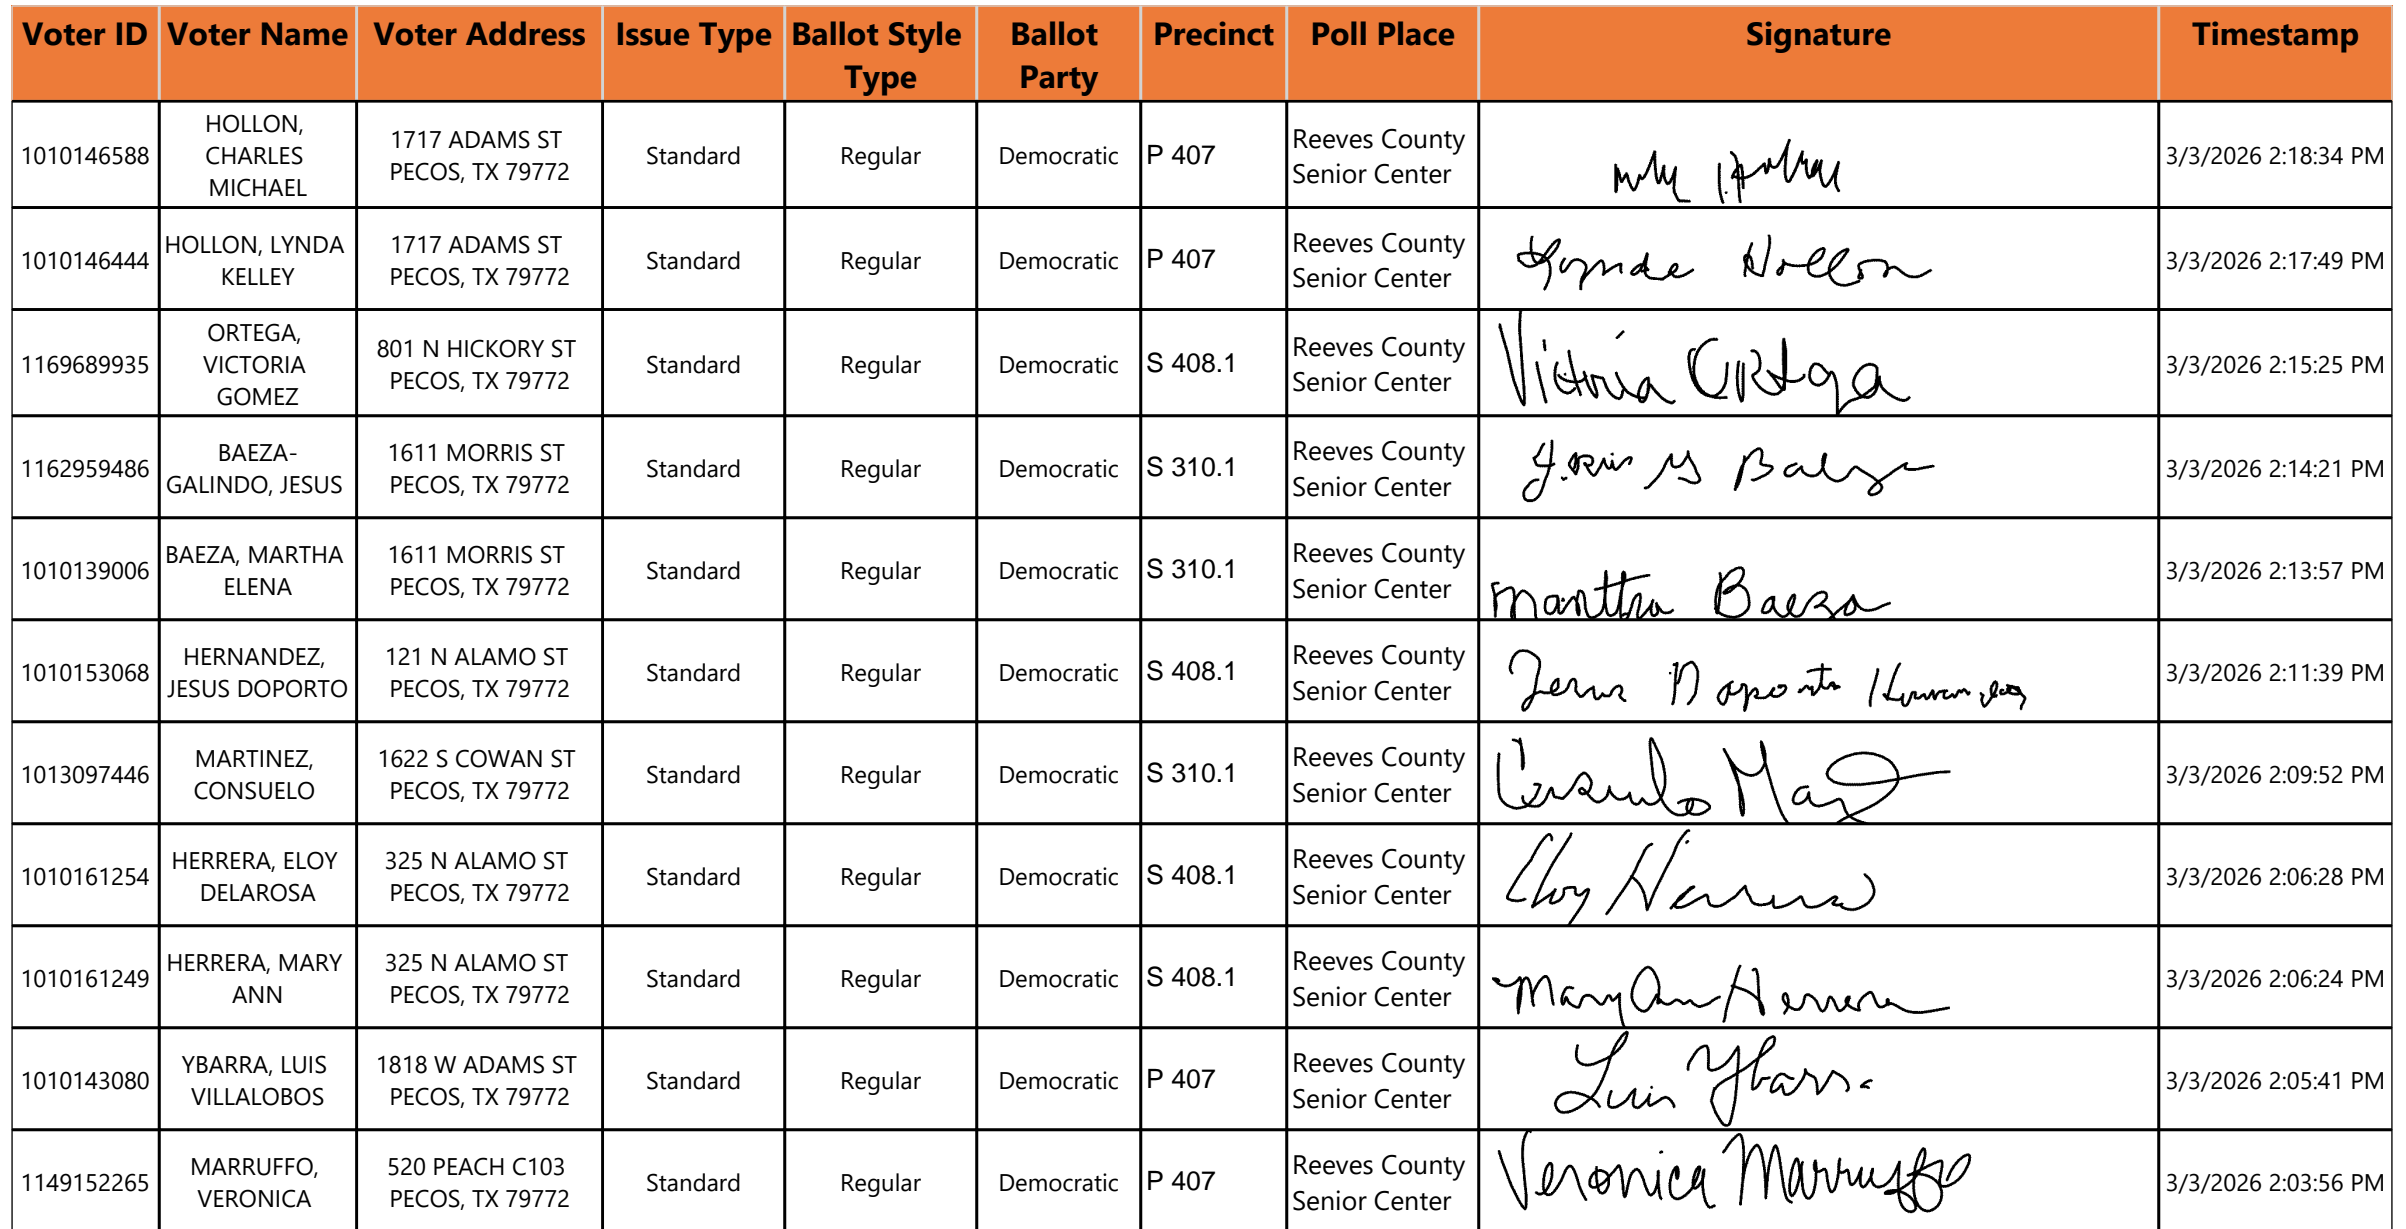 Voter ID Voter Name Voter Address Issue Type Ballot Style Type Ballot Party Precinct Poll Place Signature Timestamp
1010146588 HOLLON, CHARLES MICHAEL 1717 ADAMS ST PECOS, TX 79772 Standard Regular Democratic P 407 Reeves County Senior Center 3/3/2026 2:18:34 PM
1010146444 HOLLON, LYNDA KELLEY 1717 ADAMS ST PECOS, TX 79772 Standard Regular Democratic P 407 Reeves County Senior Center Lynda Hollon 3/3/2026 2:17:49 PM
1169689935 ORTEGA, VICTORIA GOMEZ 801 N HICKORY ST PECOS, TX 79772 Standard Regular Democratic S 408.1 Reeves County Senior Center Victoria Ortega 3/3/2026 2:15:25 PM
1162959486 BAEZA-GALINDO, JESUS 1611 MORRIS ST PECOS, TX 79772 Standard Regular Democratic S 310.1 Reeves County Senior Center Jesus G Baeza 3/3/2026 2:14:21 PM
1010139006 BAEZA, MARTHA ELENA 1611 MORRIS ST PECOS, TX 79772 Standard Regular Democratic S 310.1 Reeves County Senior Center Martha Baeza 3/3/2026 2:13:57 PM
1010153068 HERNANDEZ, JESUS DOPORTO 121 N ALAMO ST PECOS, TX 79772 Standard Regular Democratic S 408.1 Reeves County Senior Center Jesus Doporto Hernandez 3/3/2026 2:11:39 PM
1013097446 MARTINEZ, CONSUELO 1622 S COWAN ST PECOS, TX 79772 Standard Regular Democratic S 310.1 Reeves County Senior Center Consuelo 3/3/2026 2:09:52 PM
1010161254 HERRERA, ELOY DELAROSA 325 N ALAMO ST PECOS, TX 79772 Standard Regular Democratic S 408.1 Reeves County Senior Center Eloy Herrera 3/3/2026 2:06:28 PM
1010161249 HERRERA, MARY ANN 325 N ALAMO ST PECOS, TX 79772 Standard Regular Democratic S 408.1 Reeves County Senior Center Mary Ann Herrera 3/3/2026 2:06:24 PM
1010143080 YBARRA, LUIS VILLALOBOS 1818 W ADAMS ST PECOS, TX 79772 Standard Regular Democratic P 407 Reeves County Senior Center Luis Ybarra 3/3/2026 2:05:41 PM
1149152265 MARRUFFO, VERONICA 520 PEACH C103 PECOS, TX 79772 Standard Regular Democratic P 407 Reeves County Senior Center Veronica Marruffo 3/3/2026 2:03:56 PM